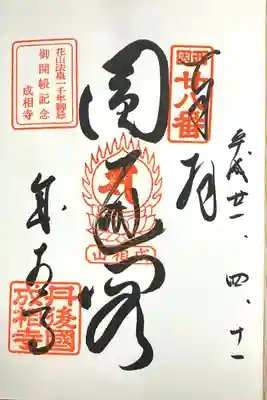 奉拝
平成廿一、四、十一
西国
廿八番
圓通閣
成相山
成相寺
丹後國
成相寺
花山法皇一千年御忌
御開帳記念
成相寺